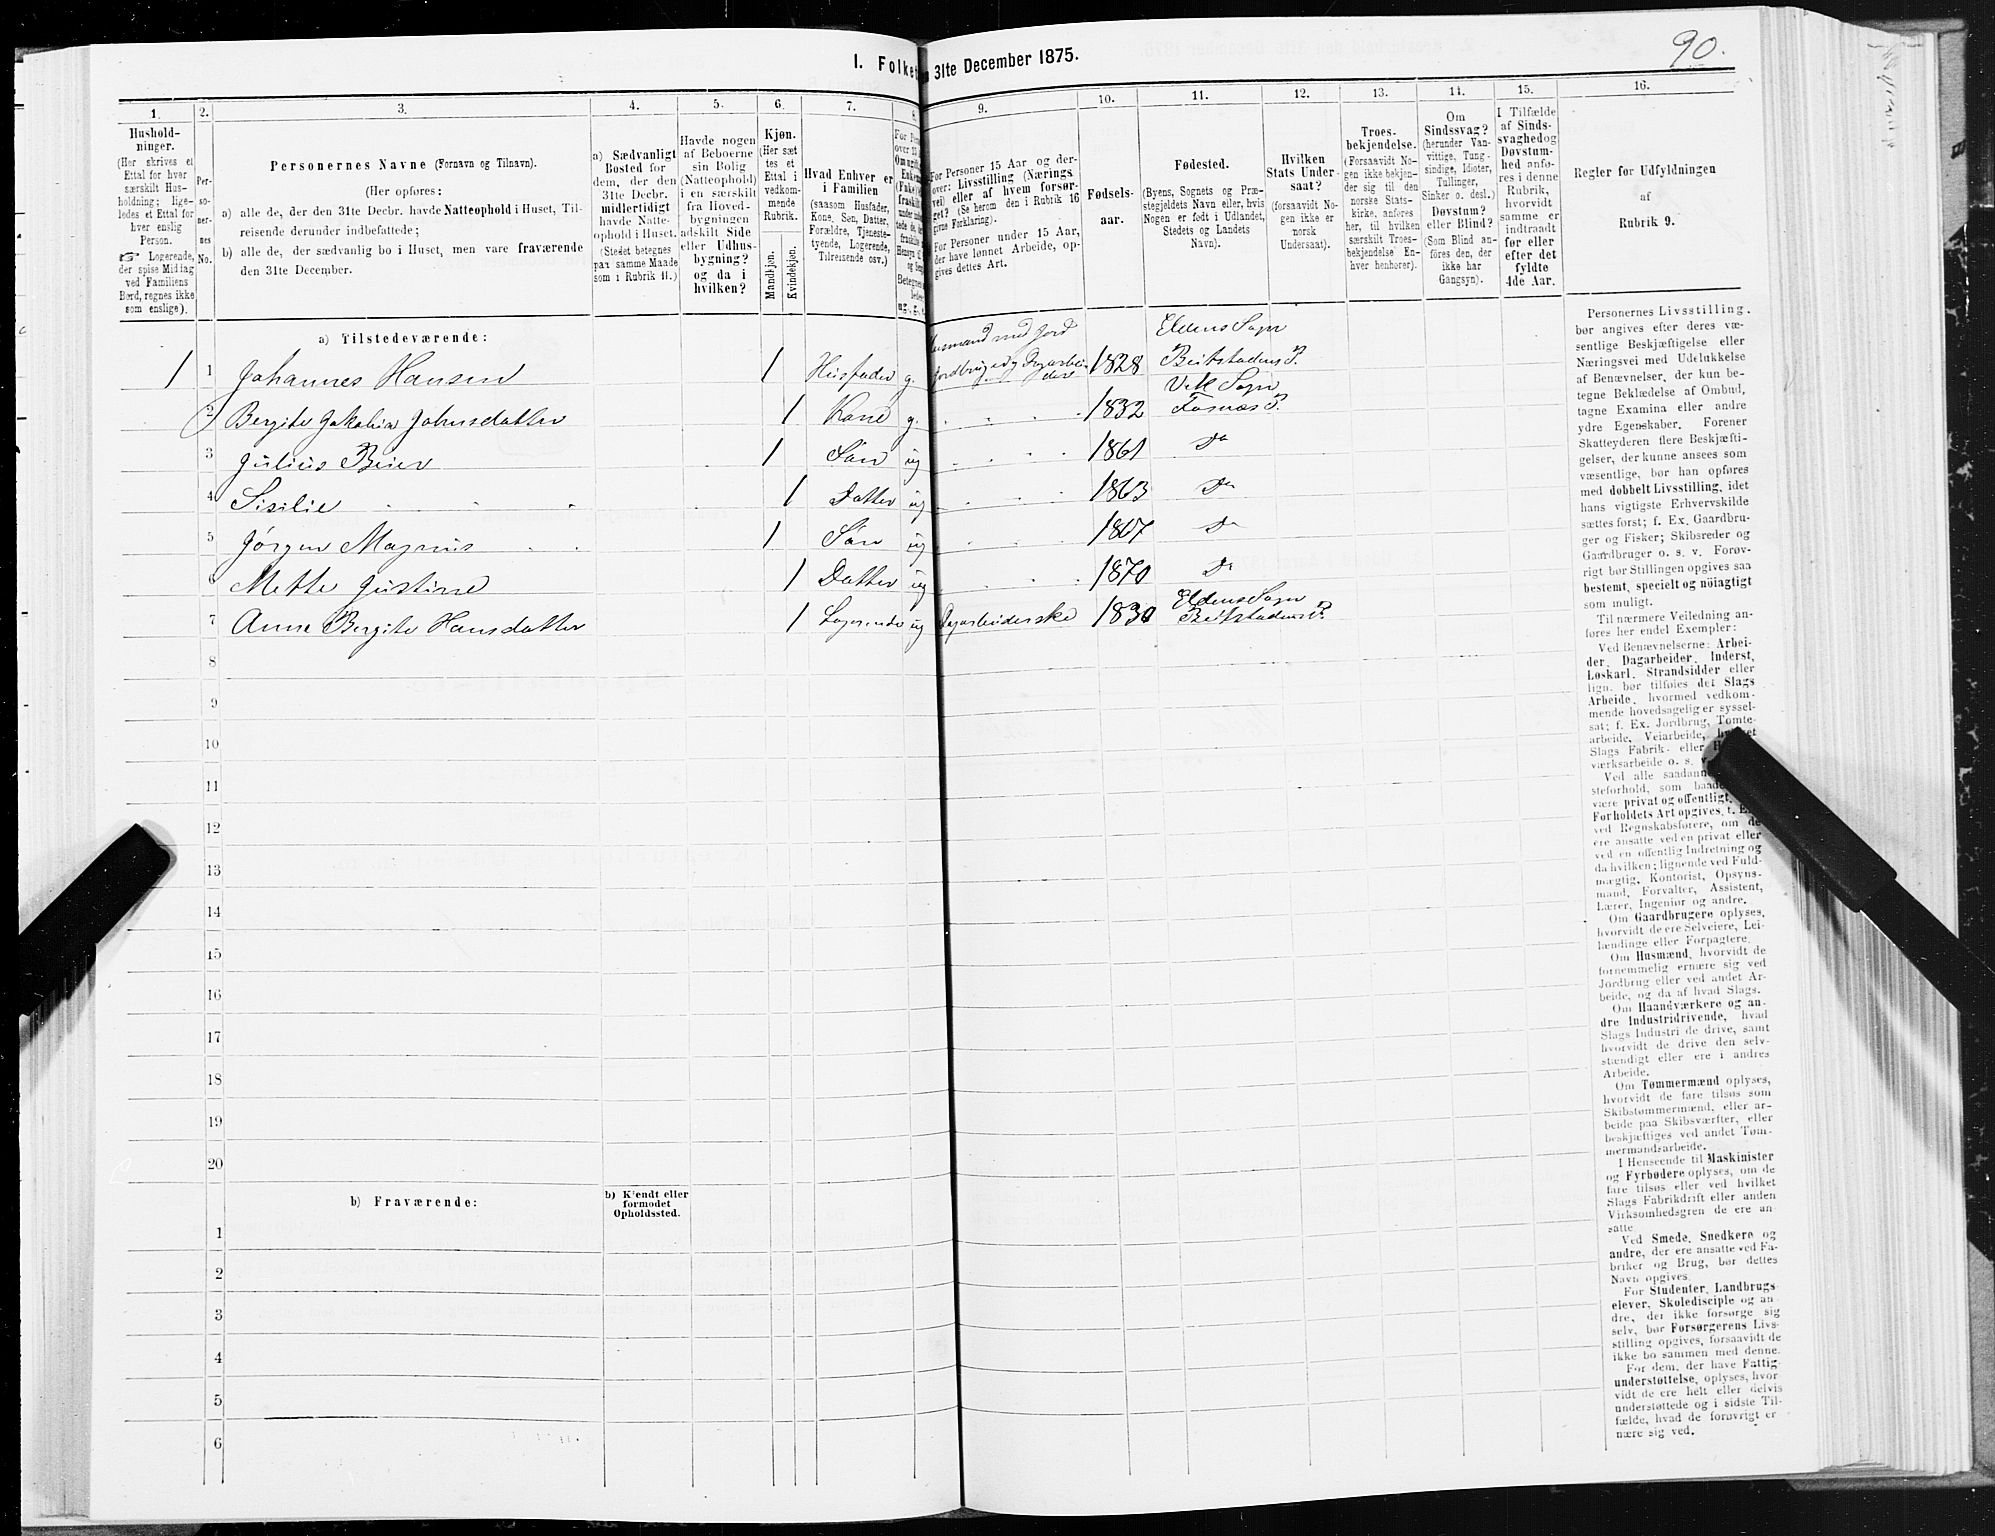 90.
I. Folket
31te December 1875.
1.
Hushold-
ninger.
(Her skrives et
Ettal for hver
særskilt Hus-
holdning; lige-
ledes et Ettal for
hver enslig
Person.
☞ Logerende,
der spise Middag
ved Familiens
Bord, regnes ikke
som enslige).
2.
Per-
so-
ner-
nes
No.
3.
Personernes Navne (Fornavn og Tilnavn).
(Her opføres:
a) alle de, der den 31te Decbr. havde Natteophold i Huset, Til-
reisende derunder indbefattede;
b) alle de, der sædvanlig bo i Huset, men vare fraværende
den 31te December.
4.
a) Sædvanligt
Bosted for
dem, der den
31te Decbr.
midlertidigt
havde Natte-
ophold i Huset.
(Stedet betegnes
paa samme Maade
som i Rubrik 11.)
5.
Havde nogen
af Beboerne
sin Bolig
(Natteophold)
i en særskilt
fra Hoved-
bygningen
adskilt Side
eller Udhus-
bygning?
og da i
hvilken?
6.
Kjøn.
(Her sæt
tes et
Ettal i
vedkom-
mende
Rubrik.
Mandkjøn.
Kvindekjøn.
7.
Hvad Enhver er
i Familien
(saasom Husfader,
Kone, Søn, Datter,
Forældre, Tjeneste-
tyende, Logerende,
Tilreisende osv.)
8.
9.
For Personer 15 Aar og der-
over: Livsstilling (Nærings
vei) eller af hvem forsør-
get? (Se herom den i Rubrik 16
givne Forklaring).
For Personer under 15 Aar,
der have lønnet Arbeide, op-
gives dettes Art.
10.
Fødsels-
aar.
11.
Fødested.
(Byens, Sognets og Præ-
stegjeldets Navn eller, hvis
Nogen er født i Udlandet,
Stedets og Landets
Navn).
12.
Hvilken
Stats Under-
saat?
(forsaavidt No-
gen ikke er
norsk
Undersaat).
13.
Troes-
bekjendelse.
(Forsaavidt No-
gen ikke bekjen-
der sig til den
norske Stats-
kirke, anføres
her, til hvilken
særskilt Troes-
bekjendelse En-
hver henhører).
14.
Om
Sindssvag?
(herunder Van-
vittige, Tung-
sindige, Idioter,
Tullinger,
Sinker o. desl.)
Døvstum?
eller Blind?
(Som Blind an-
føres den, der
ikke har
Gangsyn).
15.
I Tilfælde
af Sinds-
svaghed og
Døvstum-
hed anfø-
res i denne
Rubrik,
hvorvidt
samme er
indtraadt
før eller
efter det
fyldte
4de Aar.
16.
Regler for Udfyldningen
af
Rubrik 9.
a) Tilstedeværende:
1 1 Johannes Hansen 1 Husfader g. 1828 Eldens Sogn Beitstadens P.
2 Bergite Jakobia Johnsdatter 1 Kone g. 1832 Vik Sogn Fosnæs P.
3 Julius Beier 1 Søn ug 1861 Do
4 Sisilie 1 Datter ug 1863 Do
5 Jørgen Magnus 1 Søn ug 1867 Do
6 Mette Justine 1 Datter ug 1870 Do
7 Anne Bergite Hansdatter 1 Logerende ug Dagarbeiderske 1830 Eldens Sogn Beitstadens P.
8
9
10
11
12
13
14
15
16
17
18
19
20
b) Fraværende:
b) Kjendt eller
formodet
Opholdssted.
1
2
3
4
5
6
Personernes Livsstilling.
bør angives efter deres væ-
sentlige Beskjæftigelse eller
Næringsvei med Udelukkelse
af Benævnelser, der kun be-
tegne Beklædelse af Ombud,
tagne Examina eller andre
ydre Egenskaber. Forener
Skatteyderen flere Beskjæfti-
gelser, der kunne ansees som
væsentlige, bør han opføres
med dobbelt Livsstilling, idet
hans vigtigste Erhvervskilde
sættes først; f. Ex. Gaardbru-
ger og Fisker; Skibsreder og
Gaardbruger o. s. v. Forøv-
rigt bør Stillingen opgives saa
bestemt, specielt og nöiagtigt
som muligt.
Til nærmere Veiledning an-
føres her endel Exempler:
Ved Benævnelserne: Arbei-
der, Dagarbeider, Inderst,
Løskarl, Strandsidder eller
lign. bør tilføies det Slags
Arbeide, hvormed vedkom-
mende hovedsagelig er syssel-
sat; f. Ex. Jordbrug, Tomte-
arbeide, Veiarbeide,
Slags Fabrik- eller
værksarbeide o. s.
Ved alle saadanne
steforhold, som
være privat og offentligt,
Forholdets Art opgives, t. E
ved Regnskabsførere, om de
ere ansatte ved en privat eller
ved en offentlig Indretning og
da hvilken; lignende ved Fuld-
mægtig, Kontorist, Opsyns-
mand, Forvalter, Assistent,
Lærer, Ingeniør og andre.
Om Gaardbrugere oplyses,
hvorvidt de ere Selveiere, Lei-
lændinge eller Forpagtere.
Om Husmænd, hvorvidt de
fornemmelig ernære sig ved
Jordbrug eller ved andet Ar-
beide, og da af hvad Slags.
Om Haandværkere og an-
dre Industridrivende, hvad
Slags Industri de drive, samt
hvorvidt de drive den selv-
stændigt eller ere i andres
Arbeide.
Om Tømmermænd oplyses,
hvorvidt de fare tilsøs som
Skibstømmermænd, eller ar-
beide paa Skibsværfter, eller
beskjæftiges ved andet Tøm-
mermandsarbeide.
I Henseende til Maskinister
og Fyrbødere oplyses, om de
fare tilsøs eller ved hvilket
Slags Fabrikdrift eller anden
Virksomhedsgren de ere an-
satte.
Ved Smede, Snedkere og
andre, der ere ansatte ved Fa-
briker og Brug, bør dettes
Navn opgives.
For Studenter, Landbrugs-
elever, Skoledisciple og an-
dre, der ikke forsørge sig
selv, bør Forsørgerens Livs-
stilling opgives, forsaavidt de
ikke bo sammen med denne.
For dem, der have Fattig-
understøttelse, oplyses, hvor-
vidt de ere helt eller delvis
understøttede og i sidste Til-
fælde, hvad de forøvrigt er
nære sig ved.